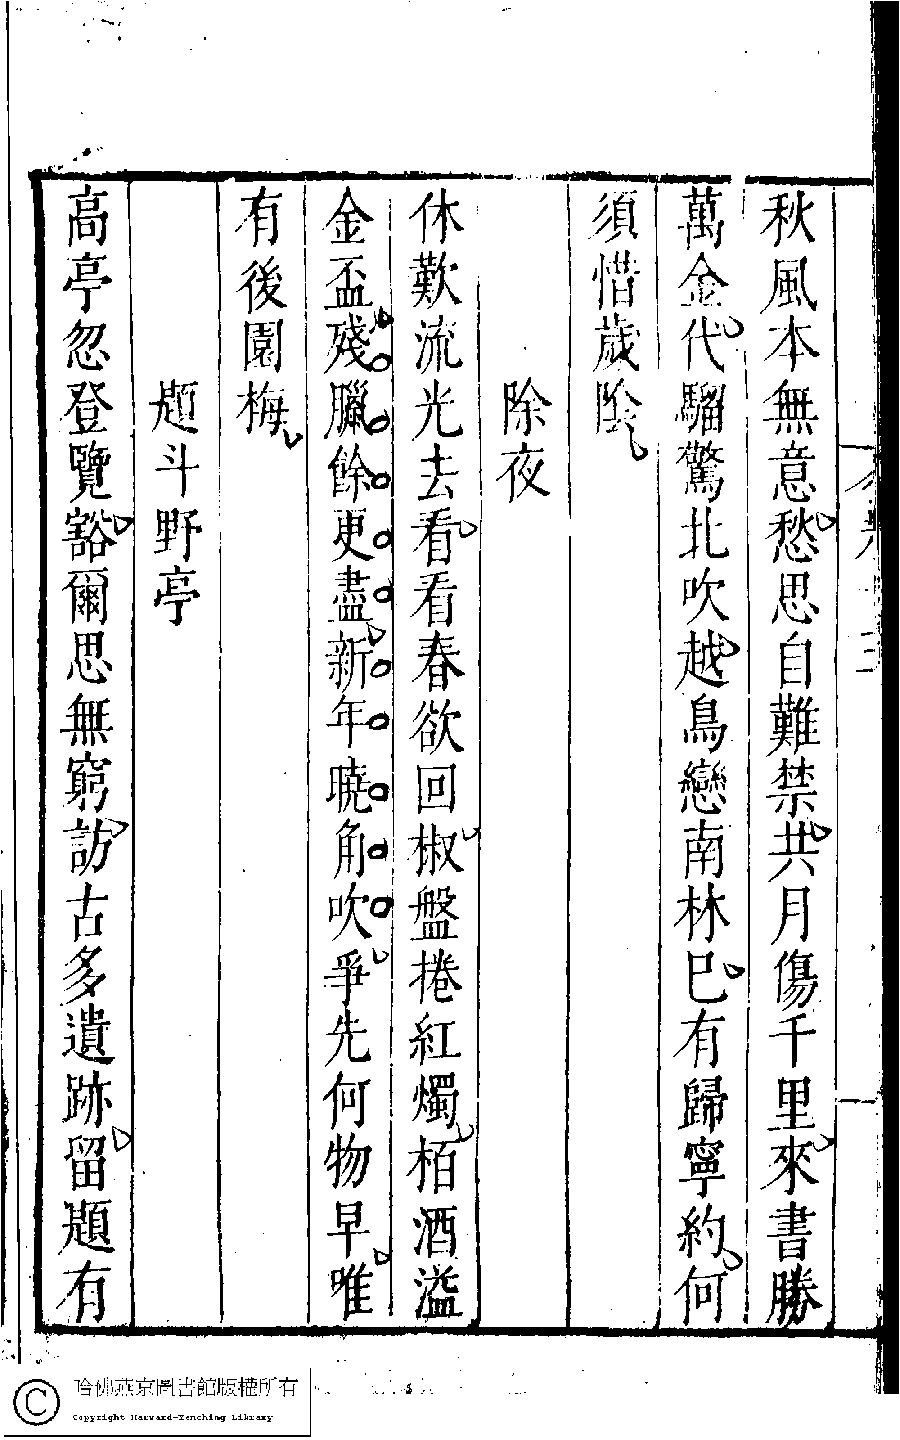 秋風本無意愁思自難禁共月傷千里來書勝
萬金代騮驚北吹越鳥戀南林巳有歸寧約何
須惜歲陰
除夜
休歎流光去看看春欲回椒盤捲紅燭栢酒溢
金盃殘臘餘更盡新年曉角吹爭先何物早唯
有後園梅
題斗野亭
高亭忽登覽豁爾思無窮訪古多遺跡留題有
哈佛燕京圖書館版權所有
Copyright Harvard-Yenching Library